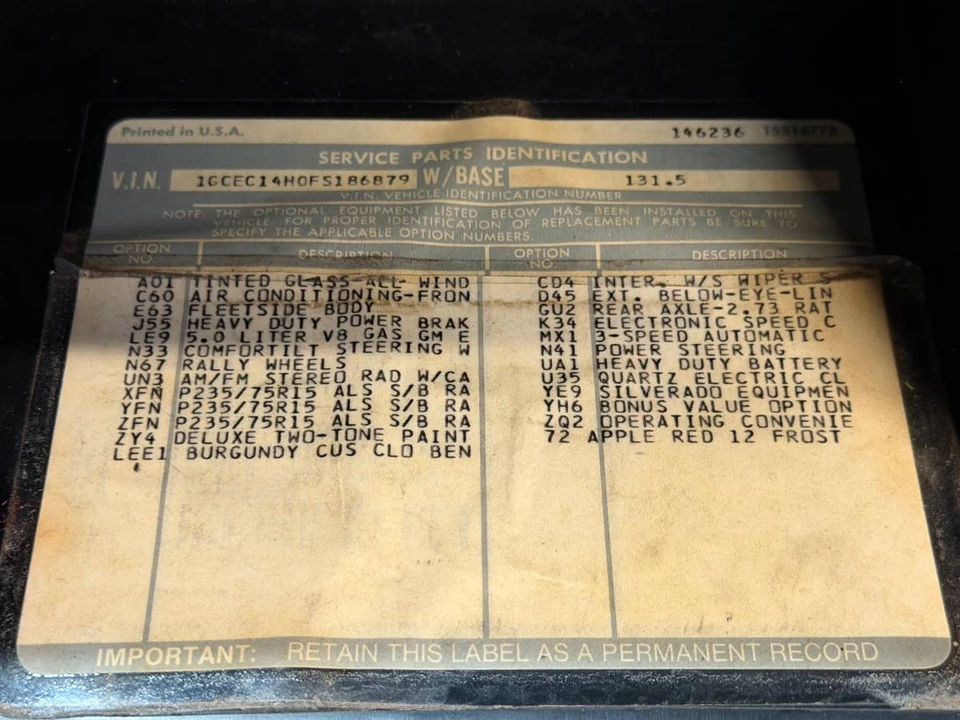 Printed in U.S.A. 146236
SERVICE PARTS IDENTIFICATION
V.I.N. 1GCEC14H0FS186879 W/BASE 131.5
V.I.N. VEHICLE IDENTIFICATION NUMBER
NOTE: THE OPTIONAL EQUIPMENT LISTED BELOW HAS BEEN INSTALLED ON THIS
VEHICLE. FOR PROPER IDENTIFICATION OF REPLACEMENT PARTS BE SURE TO
SPECIFY THE APPLICABLE OPTION NUMBERS.
OPTION NO DESCRIPTION OPTION NO DESCRIPTION
A01 TINTED GLASS-ALL WIND
C60 AIR CONDITIONING-FRON
E63 FLEETSIDE BODY
J55 HEAVY DUTY POWER BRAK
LE9 5.0 LITER V8 GAS GM E
N33 COMFORTILT STEERING W
N67 RALLY WHEELS
UN3 AM/FM STEREO RAD W/CA
XFN P235/75R15 ALS S/B RA
YFN P235/75R15 ALS S/B RA
ZFN P235/75R15 ALS S/B RA
ZY4 DELUXE TWO-TONE PAINT
LEE1 BURGUNDY CUS CLO BEN
CD4 INTER. W/S WIPER S
D45 EXT. BELOW-EYE-LIN
GU2 REAR AXLE-2.73 RAT
K34 ELECTRONIC SPEED C
MX1 3-SPEED AUTOMATIC
N41 POWER STEERING
UA1 HEAVY DUTY BATTERY
U35 QUARTZ ELECTRIC CL
YE9 SILVERADO EQUIPMEN
YH6 BONUS VALUE OPTION
ZQ2 OPERATING CONVENIE
72 APPLE RED 12 FROST
IMPORTANT: RETAIN THIS LABEL AS A PERMANENT RECORD